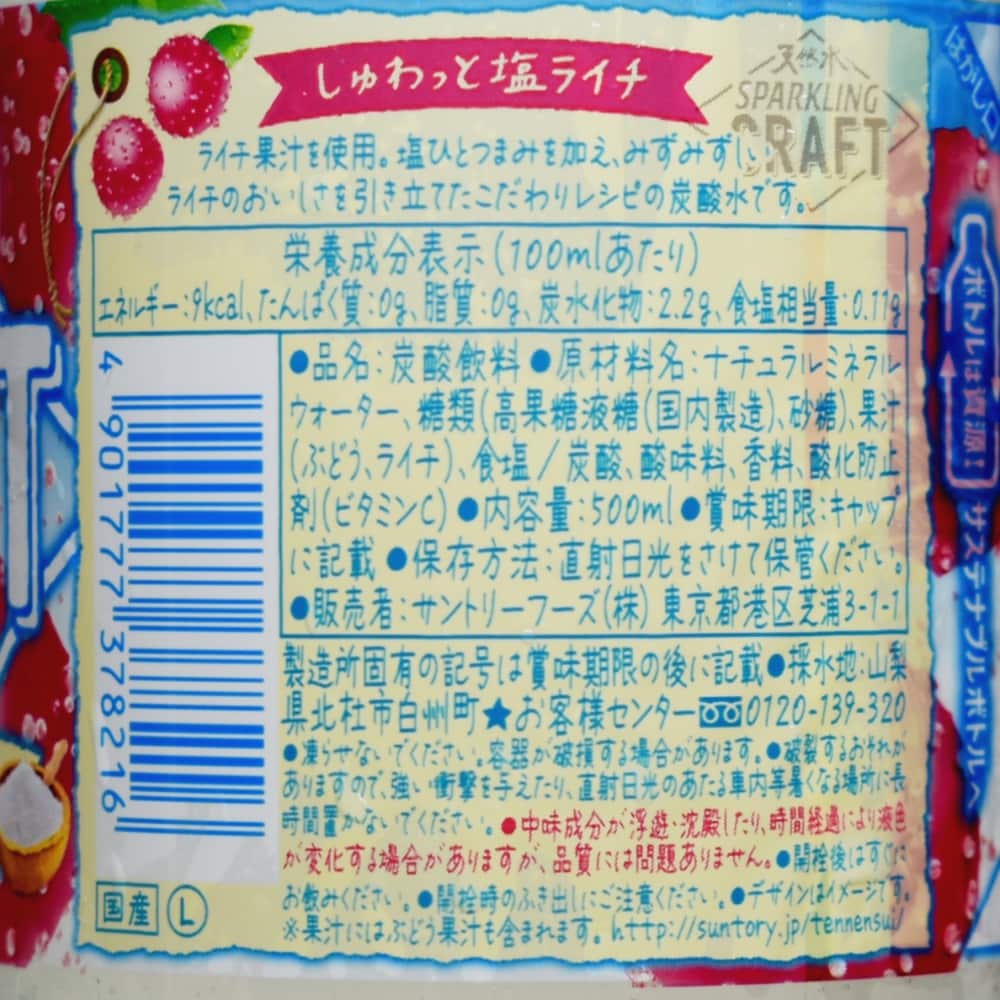 しゅわっと塩ライチ
天然水
SPARKLING
CRAFT
はがし口
ライチ果汁を使用。塩ひとつまみを加え、みずみずしい
ライチのおいしさを引き立てたこだわりレシピの炭酸水です。
栄養成分表示(100mlあたり)
エネルギー:9kcal、たんぱく質:0g、脂質:0g、炭水化物:2.2g、食塩相当量:0.11g
●品名:炭酸飲料 ●原材料名:ナチュラルミネラル
ウォーター、糖類(高果糖液糖(国内製造)、砂糖)、果汁
(ぶどう、ライチ)、食塩/炭酸、酸味料、香料、酸化防止
剤(ビタミンC) ●内容量:500ml ●賞味期限:キャップ
に記載 ●保存方法:直射日光をさけて保管ください。
●販売者:サントリーフーズ(株) 東京都港区芝浦3-1-1
製造所固有の記号は賞味期限の後に記載 ●採水地:山梨
県北杜市白州町 ★お客様センター 0120-139-320
●凍らせないでください。容器が破損する場合があります。●破裂するおそれが
ありますので、強い衝撃を与えたり、直射日光のあたる車内等暑くなる場所に長
時間置かないでください。●中味成分が浮遊・沈殿したり、時間経過により液色
が変化する場合がありますが、品質には問題ありません。●開栓後はすぐに
お飲みください。●開栓時のふき出しにご注意ください。●デザインはイメージです。
※果汁にはぶどう果汁も含まれます。http://suntory.jp/tennensui/
4 901777 378216
国産 L
ボトルは資源!
サステナブルボトルへ